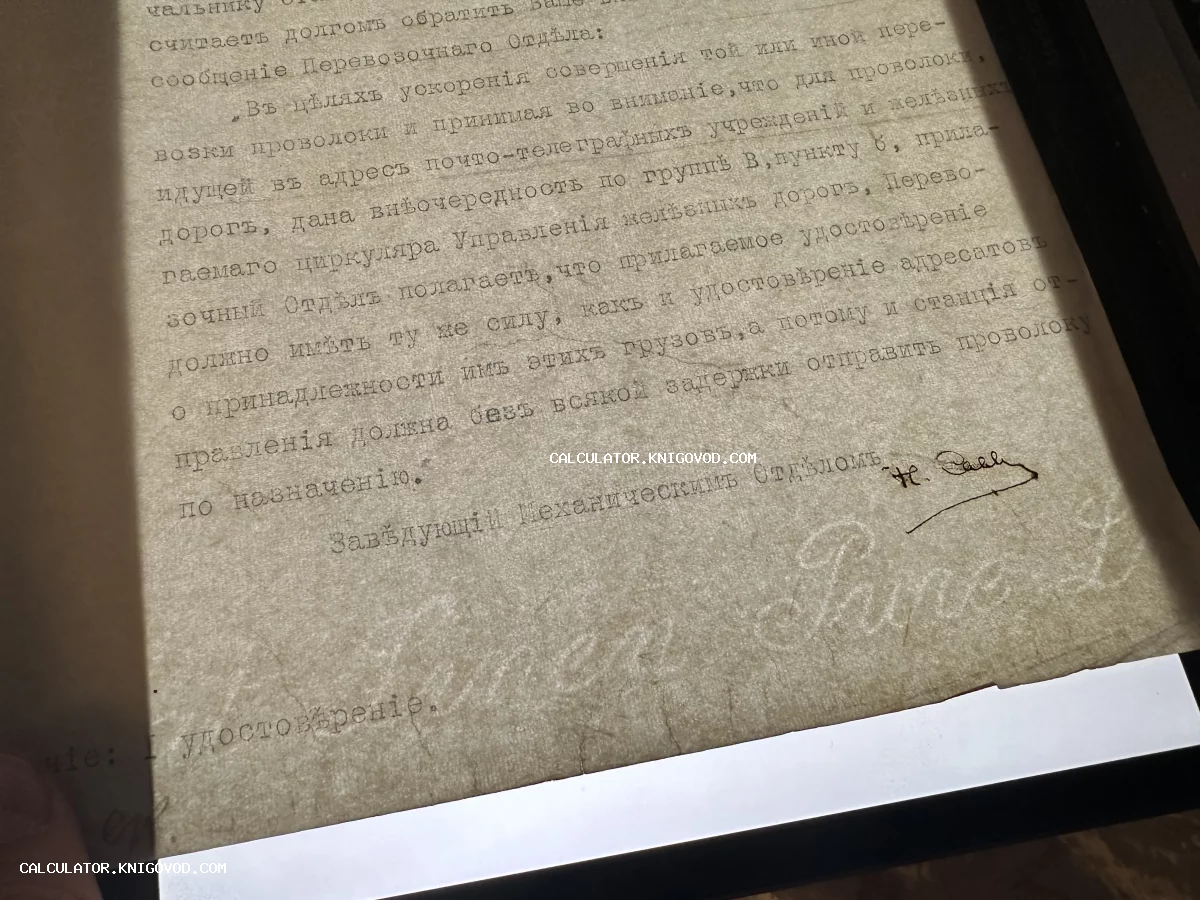 чальнику
считаетъ долгомъ обратить Ваше
сообщеніе Перевозочнаго Отдѣла:
„Въ цѣляхъ ускоренія совершенія той или иной пере-
возки проволоки и принимая во вниманіе,что для проволоки,
идущей въ адресъ почто-телеграфныхъ учрежденій и желѣзныхъ
дорогъ, дана внѣочередность по группѣ В,пункту б, прила-
гаемаго циркуляра Управленія желѣзныхъ дорогъ, Перево-
зочный Отдѣлъ полагаетъ,что прилагаемое удостовѣреніе
должно имѣть ту же силу, какъ и удостовѣреніе адресатовъ
о принадлежности имъ этихъ грузовъ,а потому и станція от-
правленія должна безъ всякой задержки отправить проволоку
по назначенію."
CALCULATOR.KNIGOVOD.COM
Завѣдующій Механическимъ Отдѣломъ Н.
ніе: I удостовѣреніе.
CALCULATOR.KNIGOVOD.COM